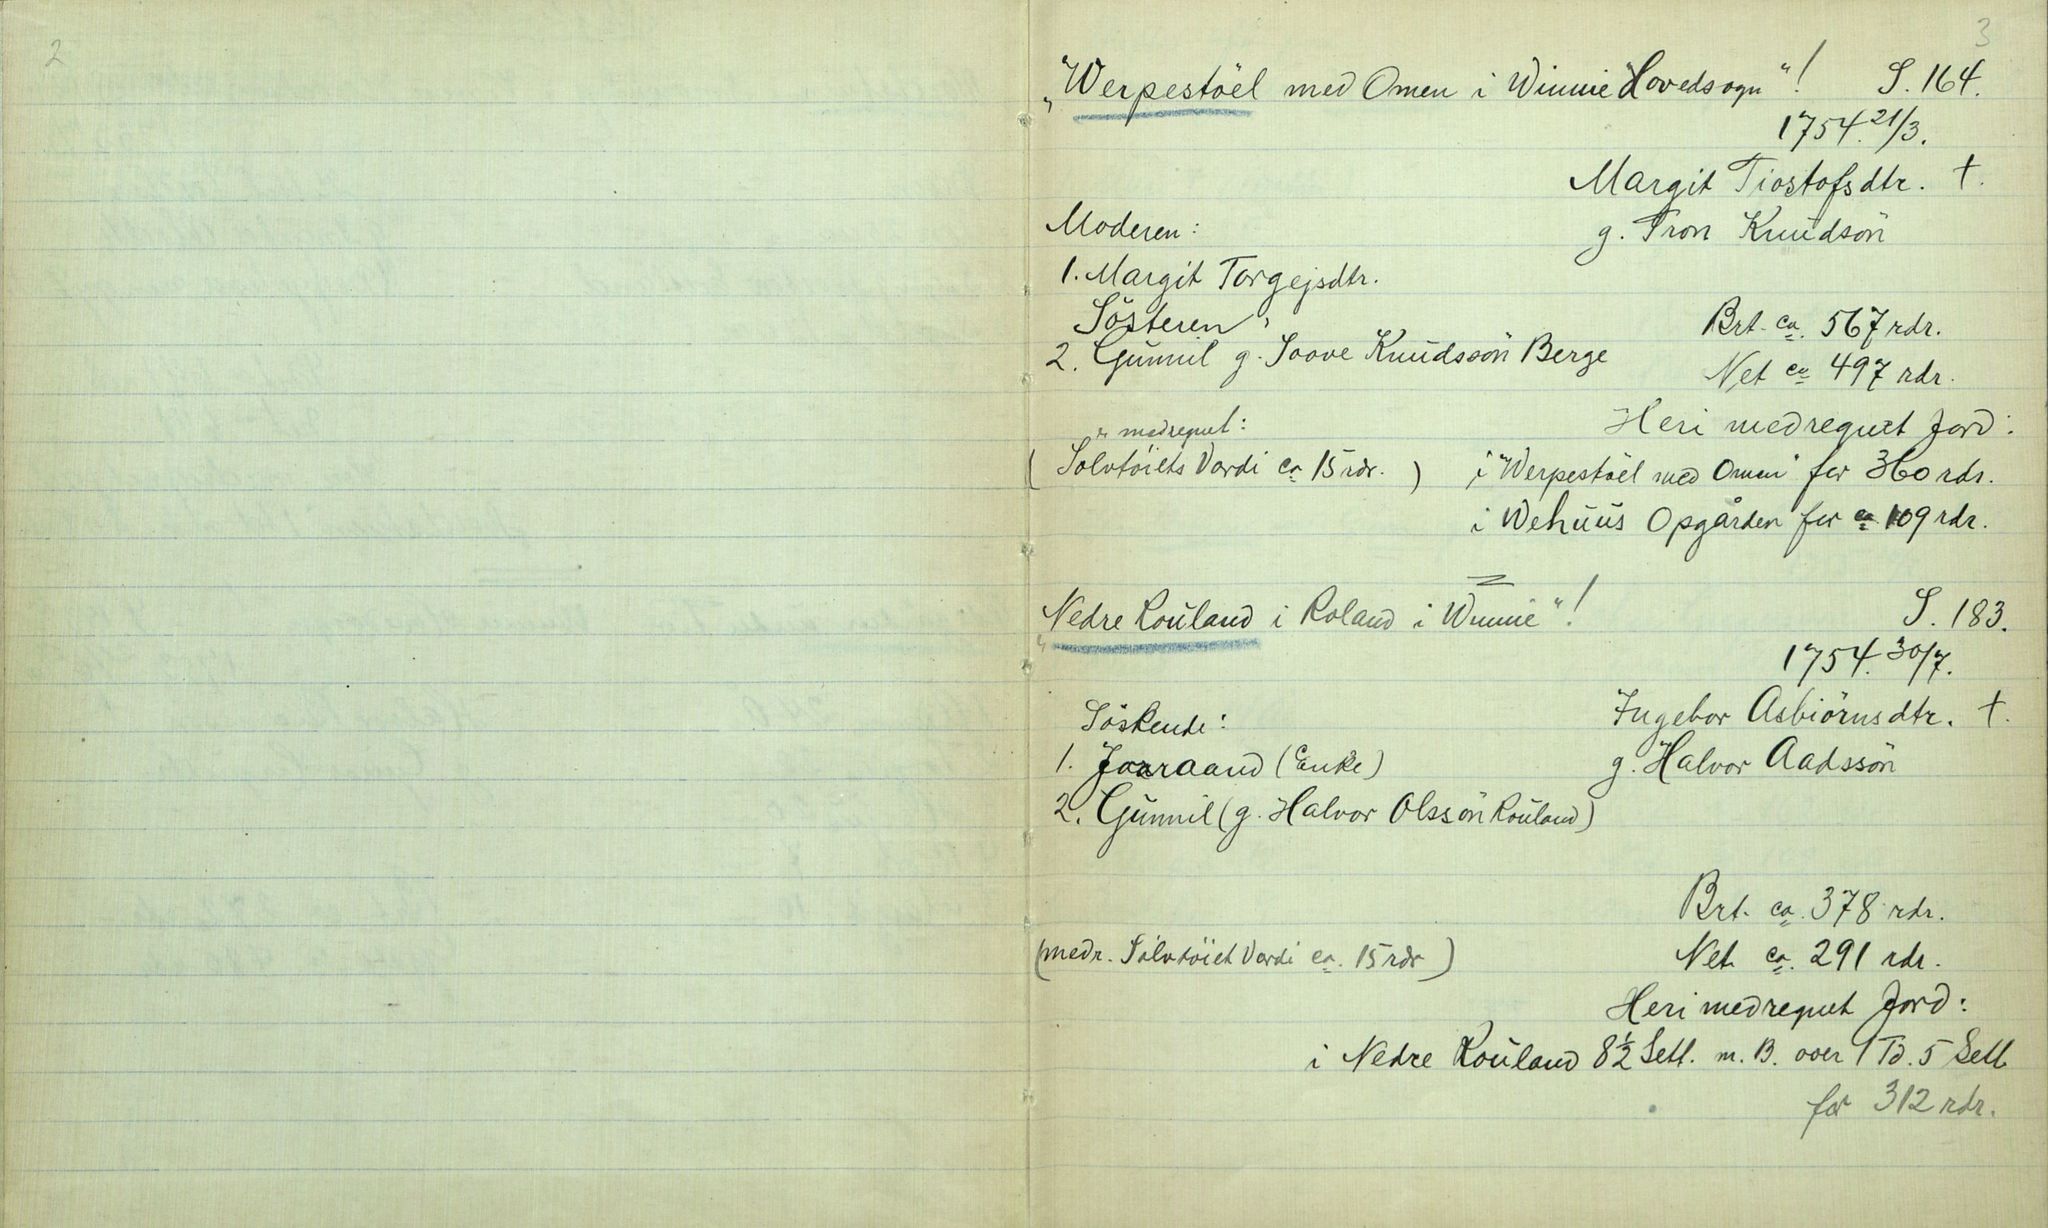 2
3
"Werpestöel med Omen i Winnie Hovedsogn"! S. 164.
1754. 21/3.
Margit Tiostofsdtr. †.
Moderen: g. Tron Knudsön
1. Margit Torgejsdtr.
Sösteren, Brt. ca. 567 rdr.
2. Gunnil g. Soove Knudssön Berge
Net ca 497 rdr.
Heri medregnet Jord:
medregnet:
(Sölvtöiets Værdi ca 15 rdr.) i "Werpestöel med Omen" for 360 rdr.
i Wehuus Opgården for ca 109 rdr.
"Nedre Rouland i Roland i Winnie"! S. 183.
1754. 30/7.
Söskende: Ingebor Asbiörnsdtr. †.
1. Joraand (Enke) g. Halvor Aadssön
2. Gunnil (g. Halvor Olssön Rouland)
Brt. ca. 378 rdr.
(medr. Sölvtöiet Værdi ca. 15 rdr) Net ca. 291 rdr.
Heri medregnet Jord:
i Nedre Rouland 8½ Setl. m. B. over 1 Td. 5 Setl
for 312 rdr.